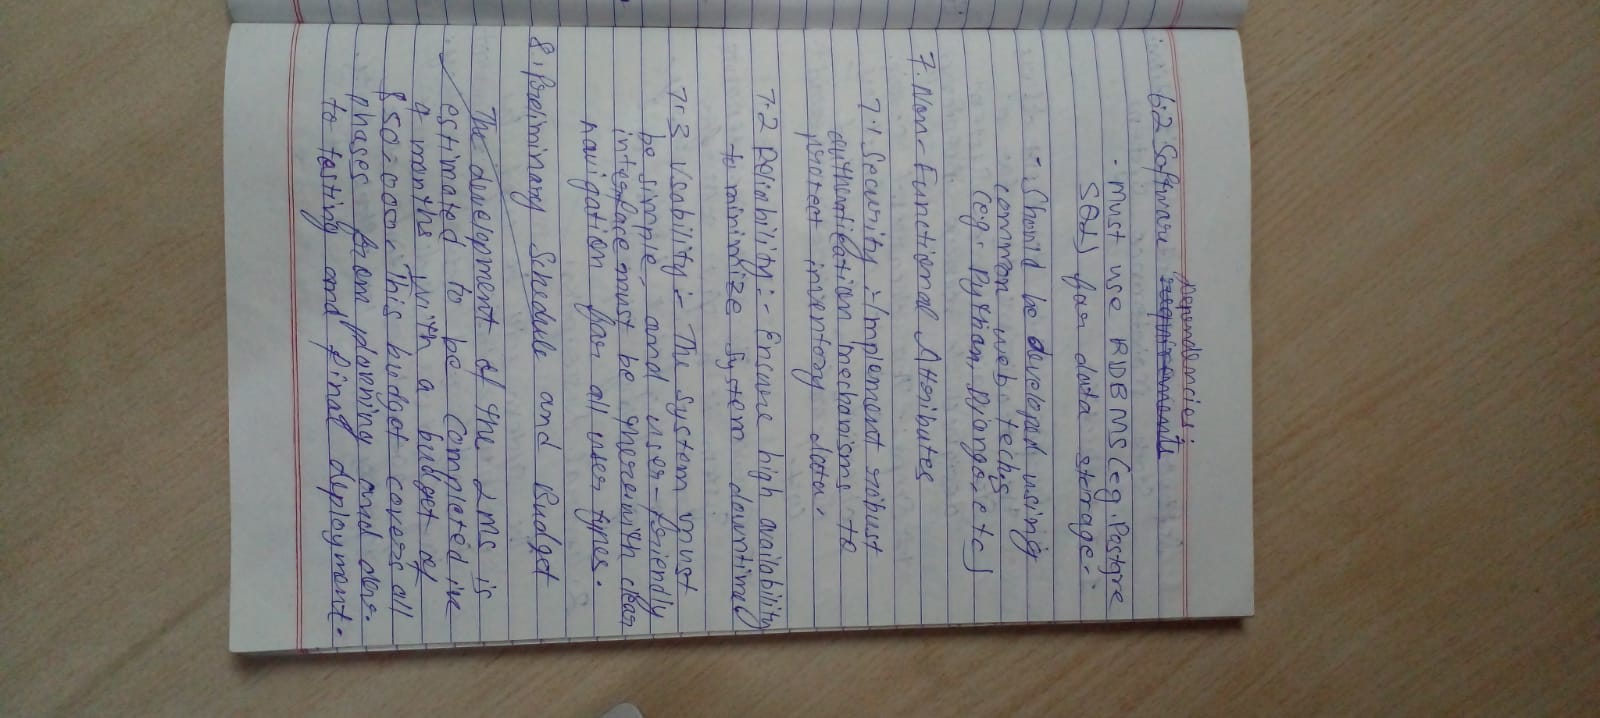 6.2 Software Dependencies:
• Must use RDBMS (eg. Postgre
SQL) for data storage.
• Should be developed using
common web techs
(eg. Python, Django, etc)
7. Non-Functional Attributes
7.1 Security :- Implement robust
authentication mechanisms to
protect inventory data.
7.2 Reliability :- Ensure high availability
to minimize system downtime
7.3 Usability :- The system must
be simple and user-friendly
interface must be there with clear
navigation for all user types.
8. Preliminary Schedule and Budget
The development of the LMS is
estimated to be completed in
4 months with a budget of
This budget covers all
phases from planning and dev.
to testing and final deployment.